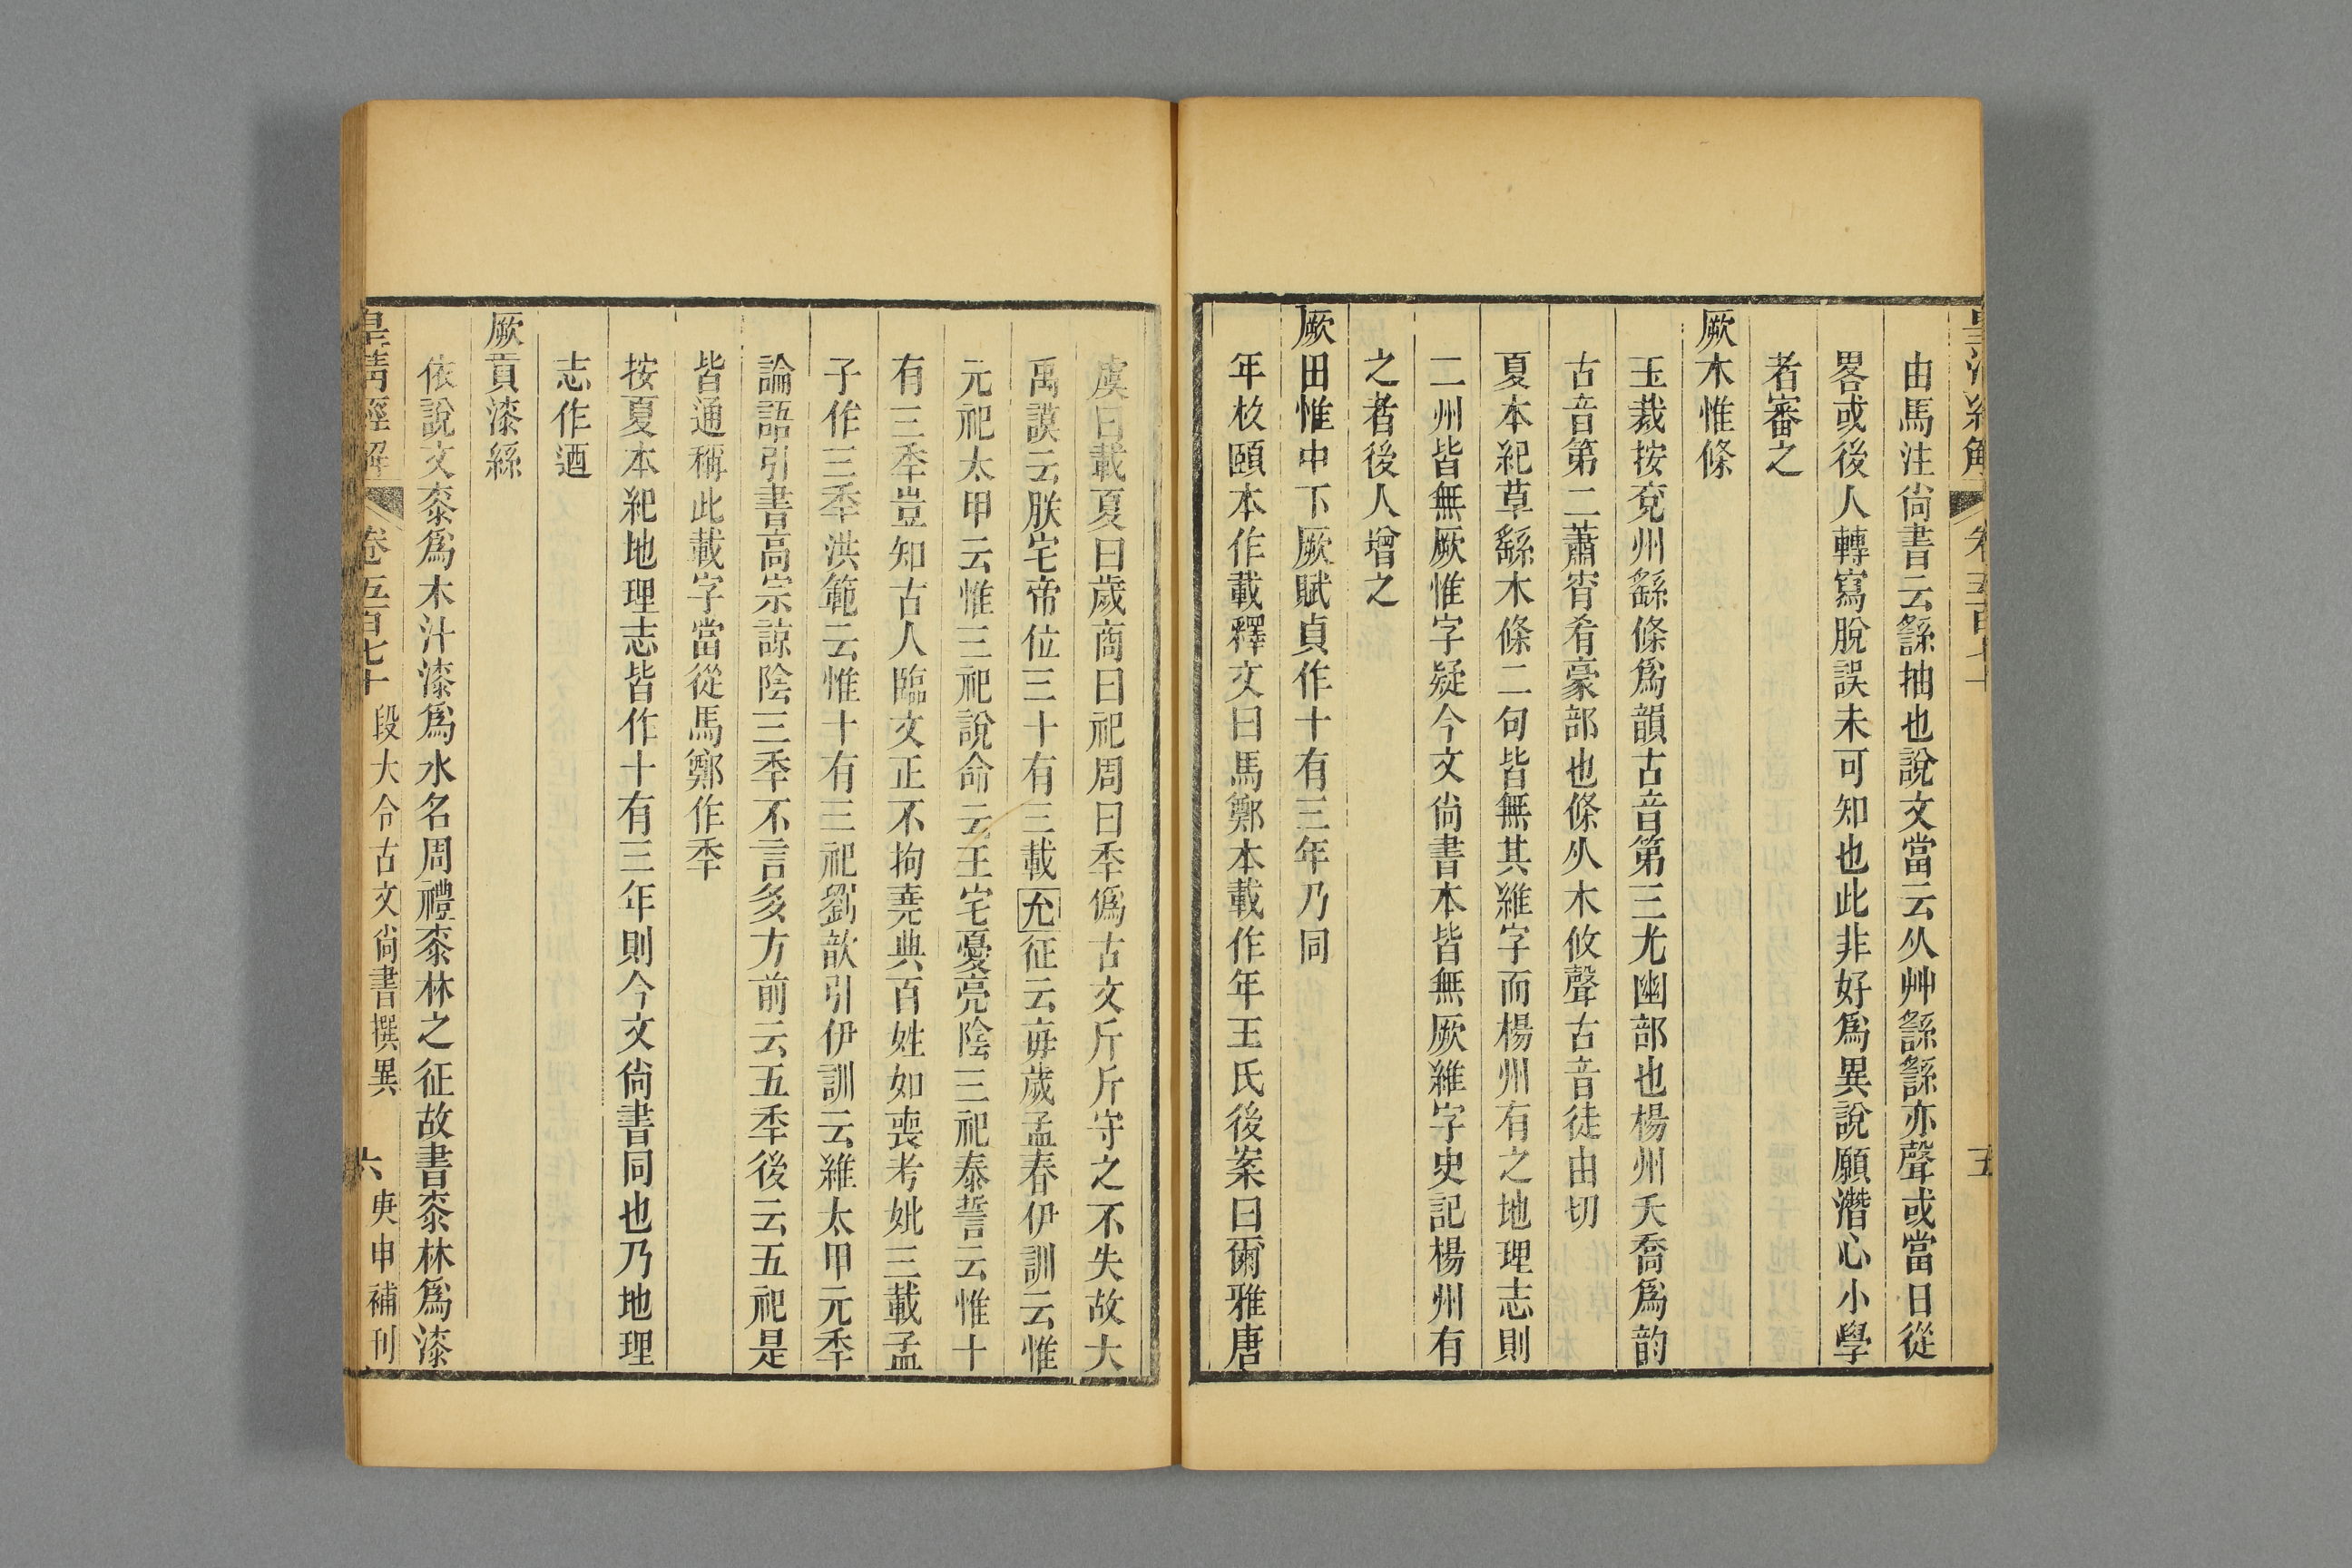 由馬注尙書云繇抽也說文當云从艸繇繇亦聲或當日從
畧或後人轉寫脫誤未可知也此非好爲異說願潛心小學
者審之
厥木惟條
玉裁按兗州繇條爲韻古音第三尤幽部也楊州夭喬爲韵
古音第二蕭宵肴豪部也條从木攸聲古音徒由切
夏本紀草繇木條二句皆無其維字而楊州有之地理志則
二州皆無厥惟字疑今文尙書本皆無厥維字史記楊州有
之者後人增之
厥田惟中下厥賦貞作十有三年乃同
年枚頤本作載釋文曰馬鄭本載作年王氏後案曰爾雅唐
虞曰載夏曰歲商曰祀周曰秊僞古文斤斤守之不失故大
禹謨云朕宅帝位三十有三載允征云每歲孟春伊訓云惟
元祀太甲云惟三祀說命云王宅憂亮陰三祀泰誓云惟十
有三秊豈知古人臨文正不拘堯典百姓如喪考妣三載孟
子作三秊洪範云惟十有三祀劉歆引伊訓云維太甲元秊
論語引書高宗諒陰三秊不言多方前云五秊後云五祀是
皆通稱此載字當從馬鄭作秊
按夏本紀地理志皆作十有三年則今文尙書同也乃地理
志作迺
厥貢漆絲
依說文桼爲木汁漆爲水名周禮桼林之征故書桼林爲漆
皇清經解 卷五百七十 段大令古文尙書撰異 六 庚申補刊